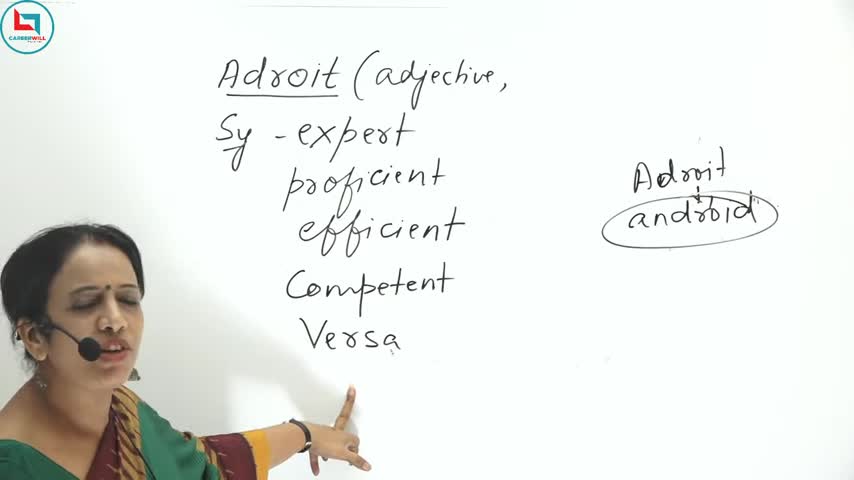 CAREERWILL
Adroit (adjective,
Sy - expert
proficient
efficient
Competent
Versa
Adroit
android